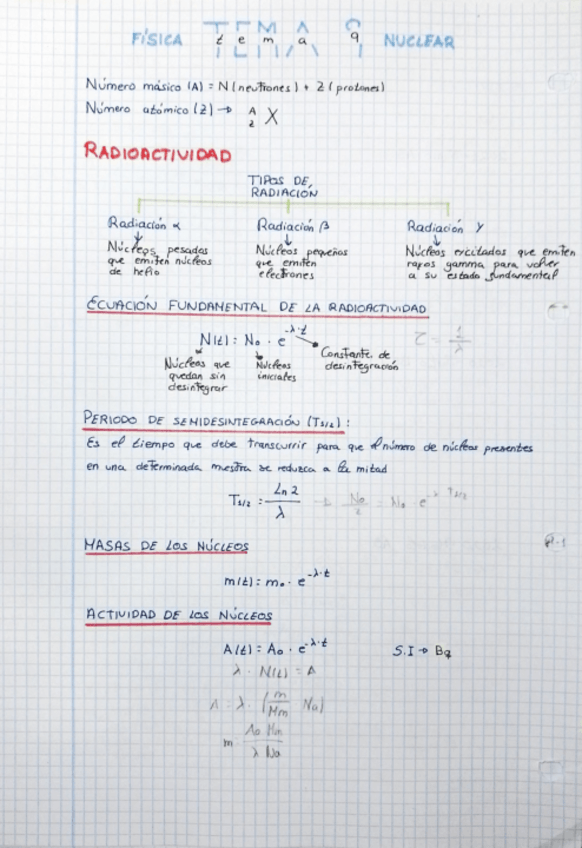 FÍSICA tema 9 NUCLEAR
Número másico (A) = N (neutrones) + Z (protones)
Número atómico (Z) → A Z X
RADIOACTIVIDAD
TIPOS DE
RADIACIÓN
Radiación α
Núcleos pesados
que emiten núcleos
de helio
Radiación β
Núcleos pequeños
que emiten
electrones
Radiación γ
Núcleos excitados que emiten
rayos gamma para volver
a su estado fundamental
ECUACIÓN FUNDAMENTAL DE LA RADIOACTIVIDAD
N(t) = N₀ · e^-λ·t
τ = 1/λ
Núcleos que
quedan sin
desintegrar
Núcleos
iniciales
Constante de
desintegración
PERIODO DE SEMIDESINTEGRACIÓN (T1/2):
Es el tiempo que debe transcurrir para que el número de núcleos presentes
en una determinada muestra se reduzca a la mitad
T1/2 = Ln 2/λ → N₀/2 = N₀ e^-λ T1/2
MASAS DE LOS NÚCLEOS
m(t) = m₀ · e^-λ·t
ACTIVIDAD DE LOS NÚCLEOS
A(t) = A₀ · e^-λ·t
S.I → Bq
λ · N(t) = A
A = λ · (m/Mm Na)
m = A₀ Mm/λ Na